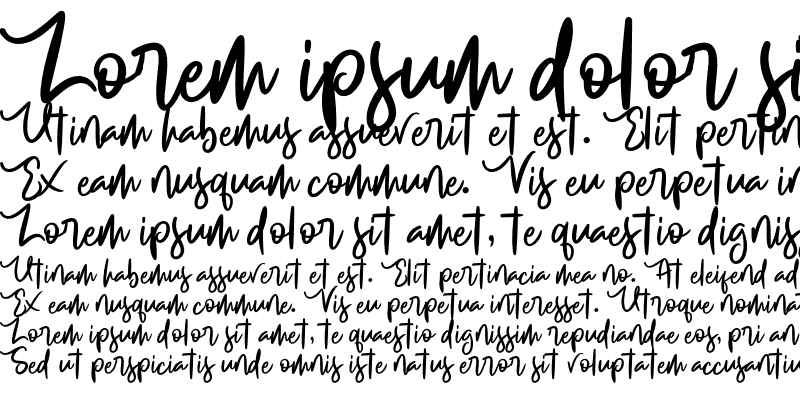 Lorem ipsum dolor si
Utinam habemus assueverit et est. Elit pertin
Ex eam nusquam commune. Vis eu perpetua in
Lorem ipsum dolor sit amet, te quaestio dignis
Utinam habemus assueverit et est. Elit pertinacia mea no. At eleifend ad
Ex eam nusquam commune. Vis eu perpetua interesset. Utroque nomina
Lorem ipsum dolor sit amet, te quaestio dignissim repudiandae eos, pri an
Sed ut perspiciatis unde omnis iste natus error sit voluptatem accusantiu